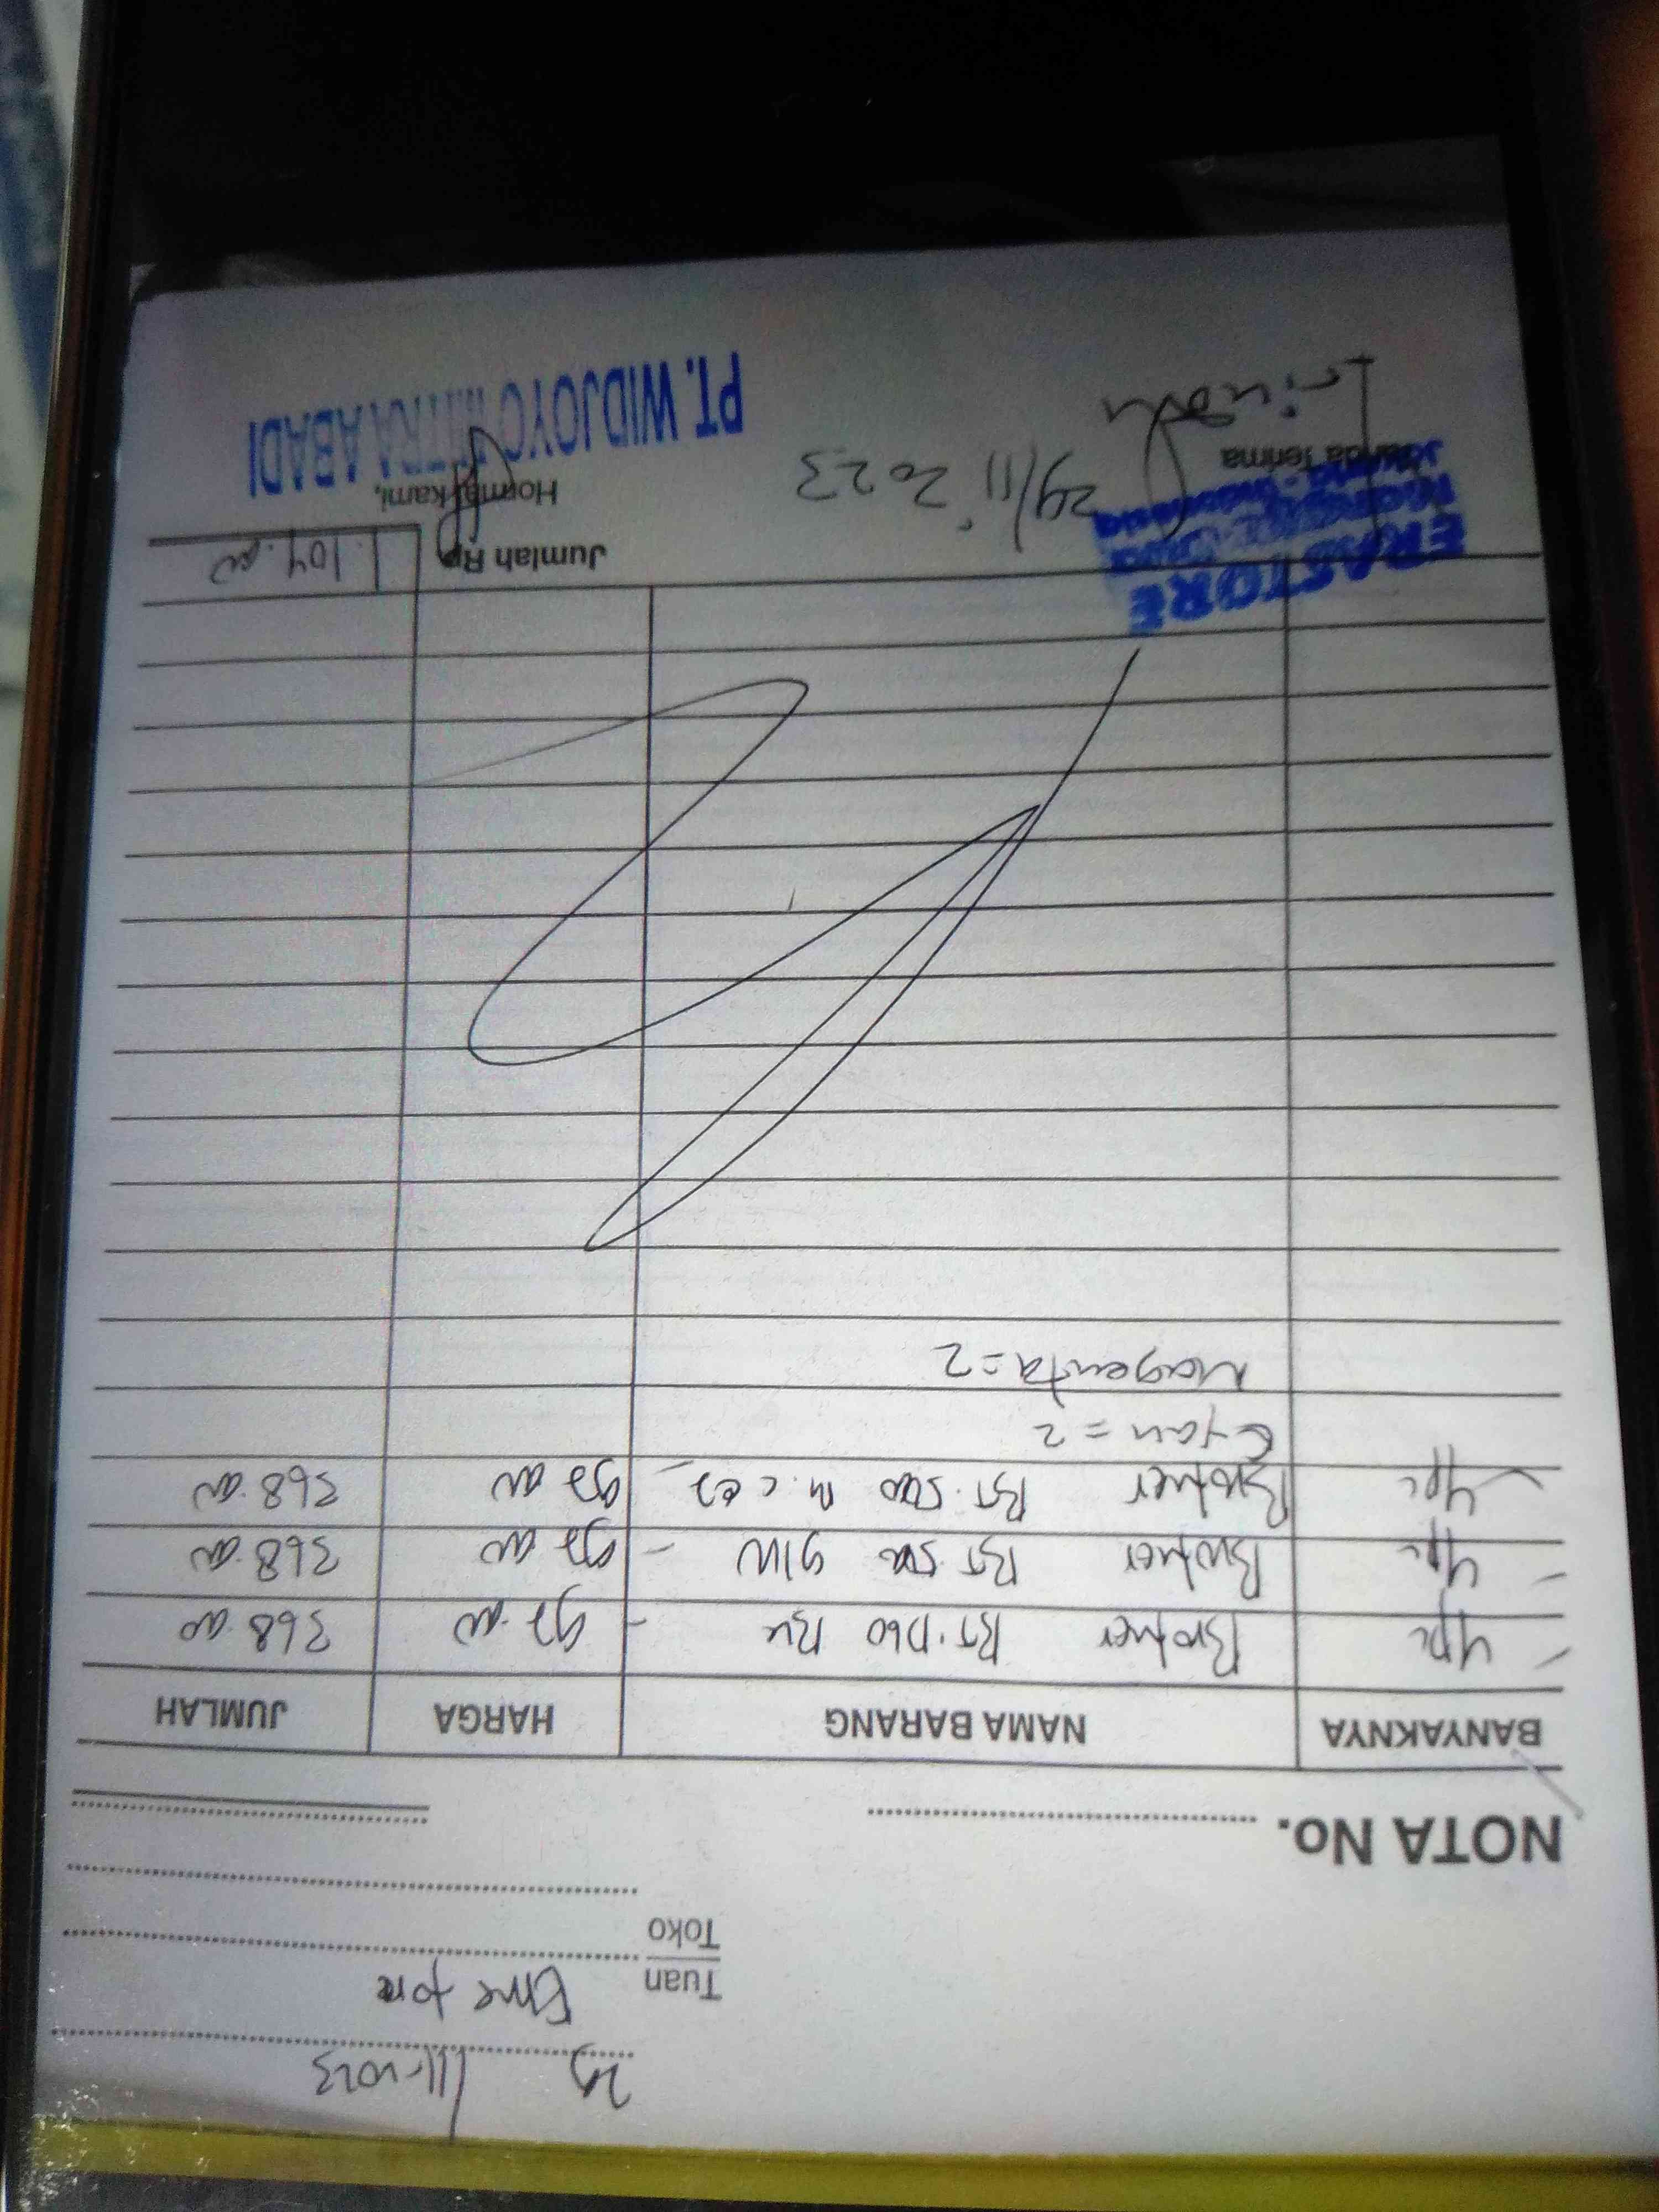 29/11-2023
Tuan
Toko
NOTA No.
BANYAKNYA NAMA BARANG HARGA JUMLAH
4pc Brother BT.D60 BK - 92.00 368.00
4pc Brother BT.5000 - 92.00 368.00
4pc Brother BT.5000 M.C @2 - 92.00 368.00
Cyan = 2
Magenta = 2
Jumlah Rp 1.104.00
ERASTORE
Tanda Terima
29/11 2023
Hormat kami,
PT. WIDJOYO MITRA ABADI